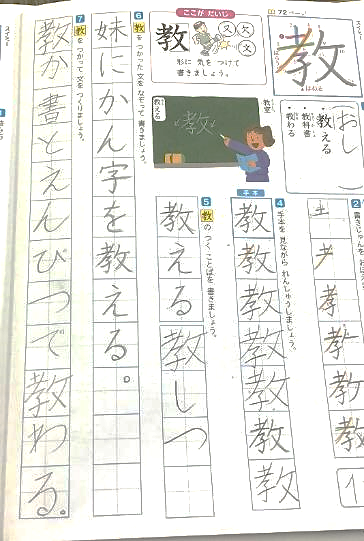 72ページ
教
おし
教える
教科書
教わる
2
ここがだいじ
教
又
欠
文
形に気をつけて
書きましょう。
教室
教える
教
4 手本を見ながられんしゅうしましょう。
手本
教
教
教
教
教
教
教
5 教のつくことばを書きましょう。
教える
教しつ
6 教をつかった文をなぞって書きましょう。
妹にかん字を教える。
7 教をつかって文をつくりましょう。
教か書とえんぴつで教わる。